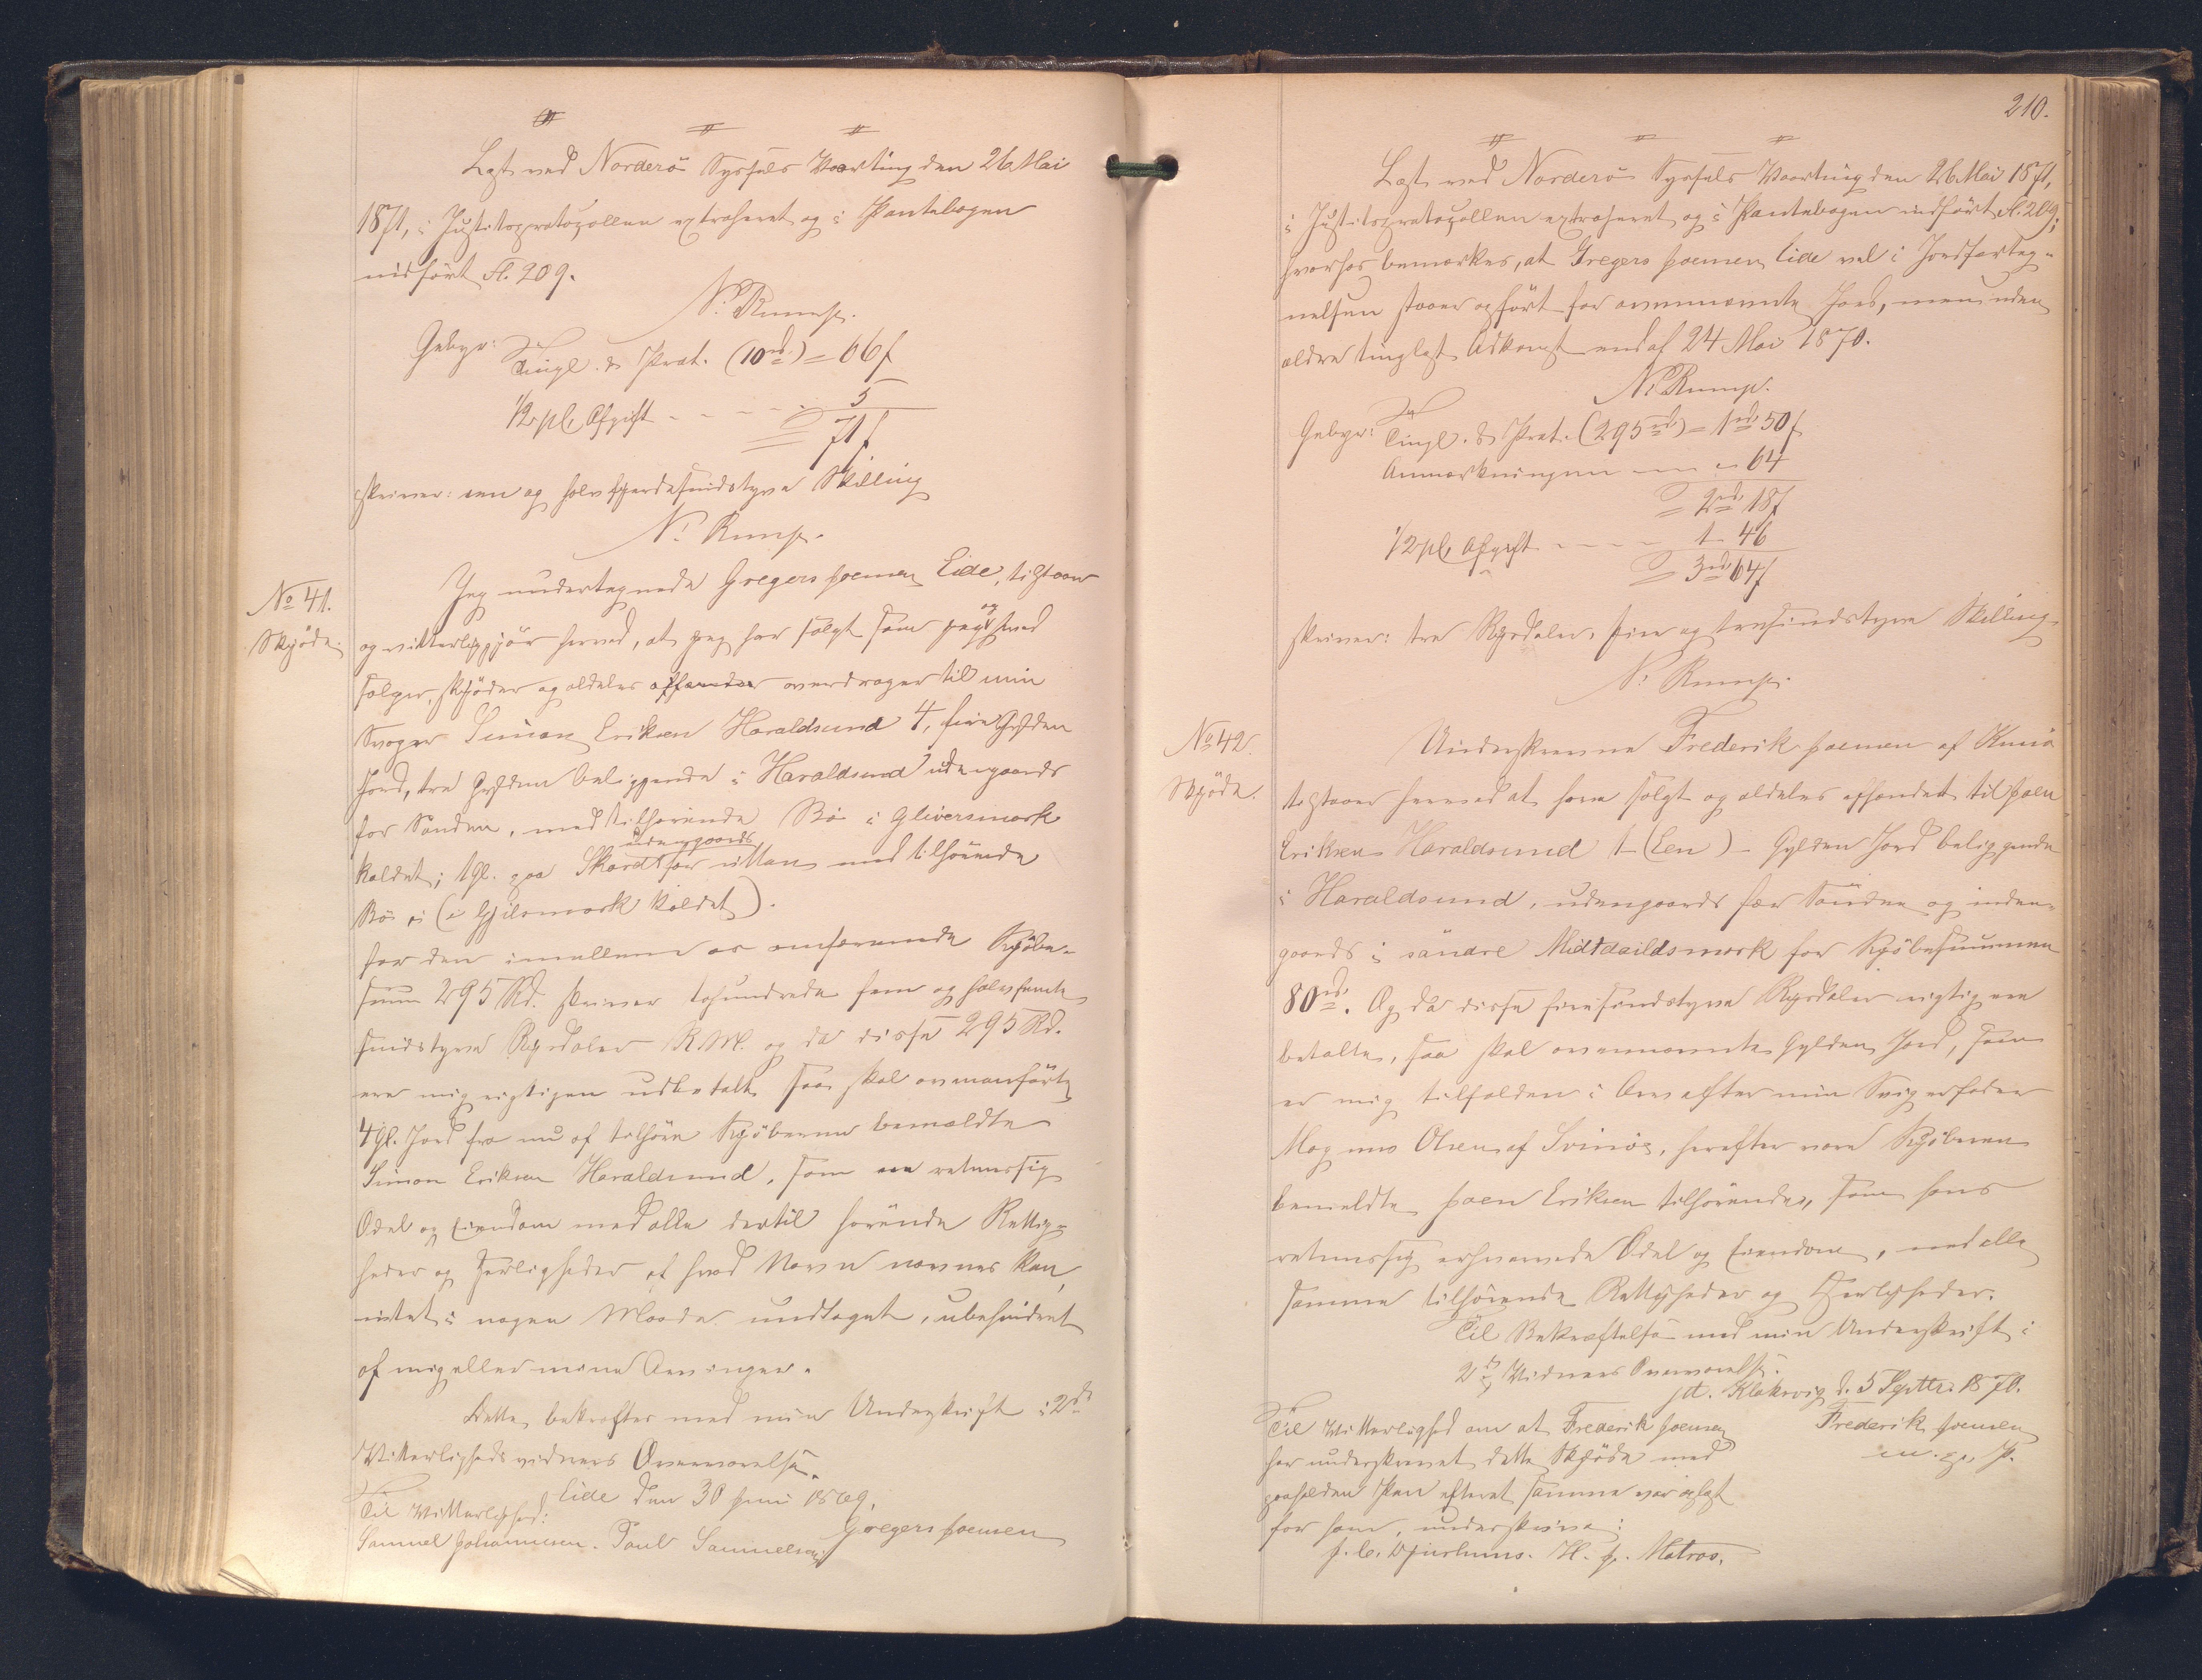 Læst ved Norderö Syssels Vaarting den 26 Mai
1871, i Justitsprotocollen extraheret og i Pantebogen
indført Fl. 209.
N. Rump.
Gebyr: Tingl. & Prot. (10 rd) = 66 ſ
1/2 pCt Afgift - - - - 5
= 71 ſ
skriver: een og halvfjerdesindstyve Skilling
N. Rump.
No 41.
Skjöde.
Jeg undertegnede Gregers Joensen Eide, tilstaaer
og vitterliggjör herved, at jeg har solgt som jeg og hermed
sælger, skjöder og aldeles afhænder overdrager til min
Svoger Simon Eriksen Haraldsund 4, fire Gylden
Jord, tre Gylden beliggende i Haraldsund udengaards
for Sönden, med tilhörende Bö i Gliversmork
kaldet; 1 gl. paa Skardt udengaards for uttan med tilhörende
Bö i (i Gjilsmork kaldet).
for den imellem os omforenede Kjöbe-
sum 295 Rd. skriver tohundrede fem og halvfemte
sindstyve Rigsdaler R.M. og da disse 295 Rd.
ere mig rigtigen udbetalte saa skal ovenanförte
4 gl. Jord fra nu af tilhöre Kjöberen bemeldte
Simon Eriksen Haraldsund, som en retmæssig
Odel og Eiendom med alle dertil hörende Rettig-
heder og Herligheder af hvad Navn nævnes kan,
intet i nogen Maade undtaget, ubehindret
af mig eller mine Arvinger.
Dette bekræftes med min Underskrift i 2de
Vitterlighedsvidners Overværelse.
Eide den 30 Juni 1869.
Til Vitterlighed:
Gregers Joensen
Samuel Johannesen. Poul Samuelsen
210.
Læst ved Norderö Syssels Vaarting den 26 Mai 1871,
i Justitsprotocollen extraheret og i Pantebogen indfört Fl. 209;
hvorhos bemærkes, at Gregers Joensen Eide vel i Jordforteg-
nelsen staaer opfört for ovennævnte Jord, men uden
ældre tinglæst Adkomst end af 24 Mai 1870.
N. Rump.
Gebyr: Tingl. & Prot. (295 rd) = 1 rd 50 ſ
Anmærkningen - - 64
= 2 rd 18 ſ
1/2 pCt Afgift - - - - 1 - 46
= 3 rd 64 ſ
skriver: tre Rigsdaler, fire og tresindstyve Skilling
N. Rump.
No 42.
Skjöde.
Underskrevne Frederik Joensen af Kunö
tilstaaer herved at have solgt og aldeles afhændet til Joen
Eriksen Haraldsund 1 - (Een) - Gylden Jord beliggende
i Haraldsund, udengaards for Sönden og inden-
gaards i söndre Midtdeildsmork for Kjöbesummen
80 rd. Og da disse firesindstyve Rigsdaler rigtig ere
betalte, saa skal ovennævnte Gylden Jord, som
er mig tilfalden i Arv efter min Svigerfader
Magnus Olsen af Svinöe, herefter være Kjöberen
bemeldte Joen Eriksen tilhörende, som hans
retmæssig erhvervede Odel og Eiendom, med alle
samme tilhörende Rettigheder og Herligheder.
Til Bekræftelse med min Underskrift i
2de Vidners Overværelse.
pt. Klaksvig d. 5 Septbr. 1870.
Til Vitterlighed om at Frederik Joensen
har underskrevet dette Skjöde med
paaholden Pen efterat samme var oplæst
for ham, underskrive:
Frederik Joensen
m. p. P.
J. C. Djurhuus. H. J. Matras.